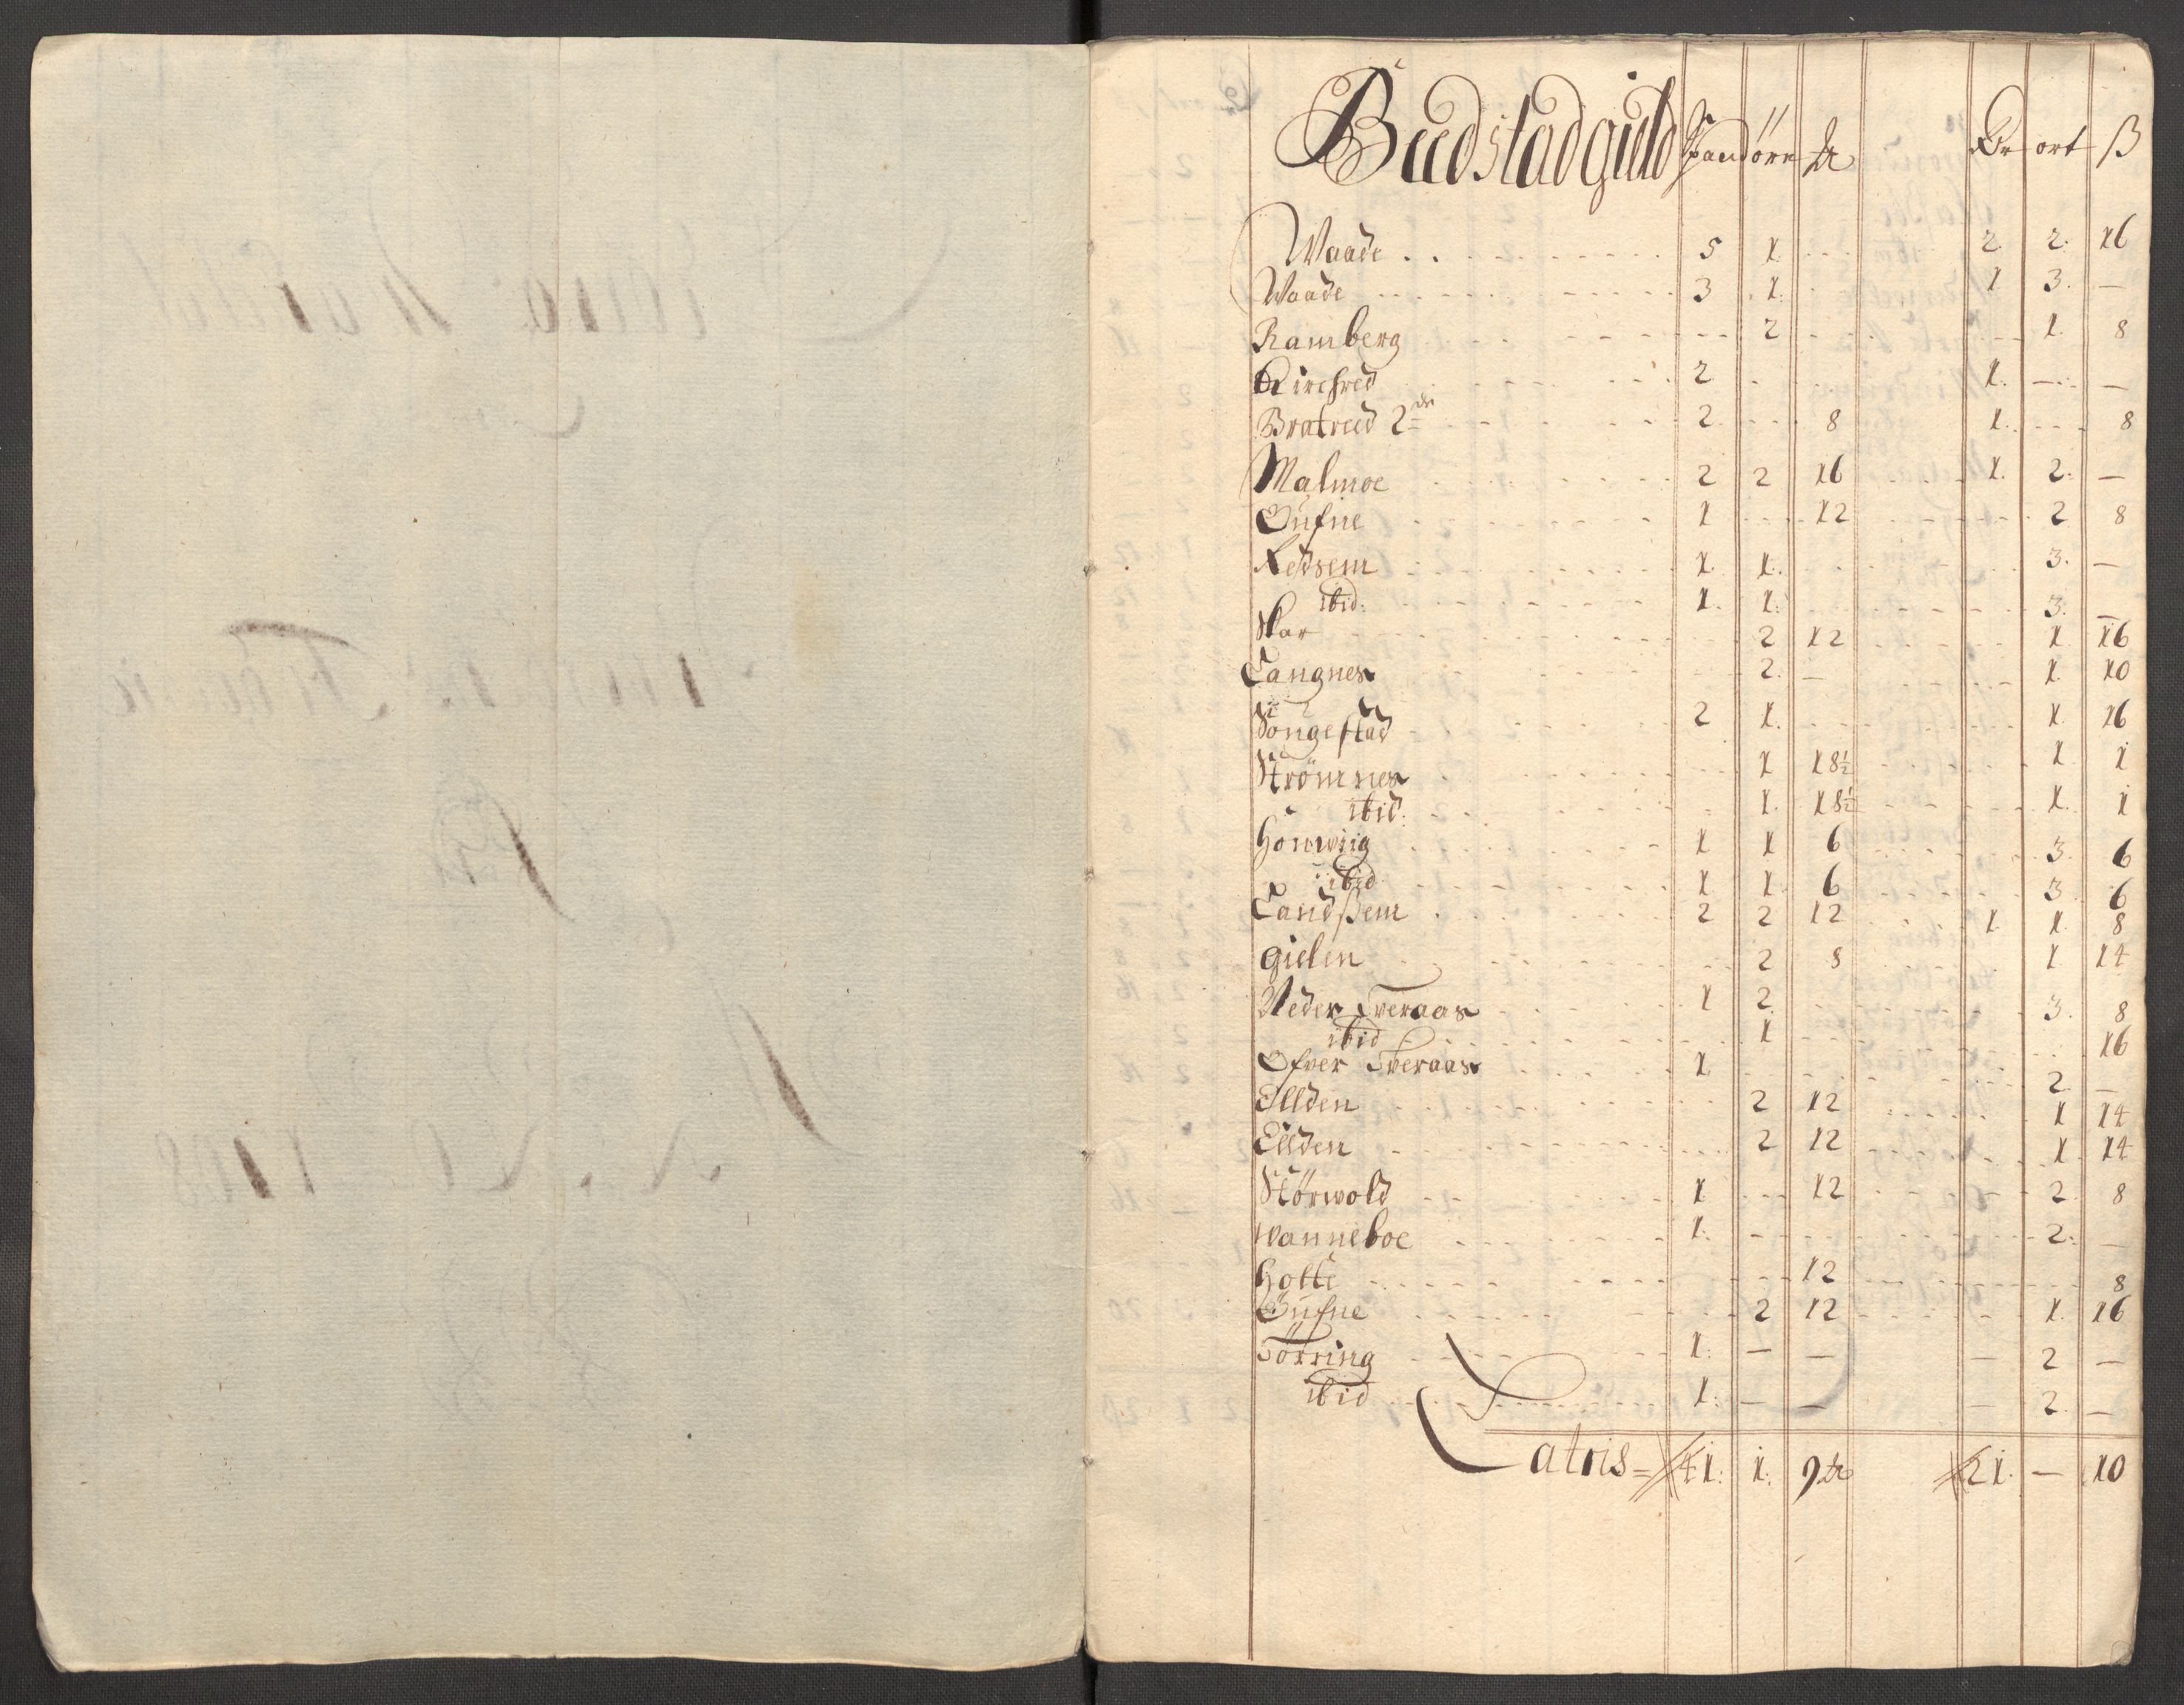 Beedstadguld Spand ören ꝉ Dr ort ß
Waade 5 1 2 2 16
Waade 3 1 1 3 —
Ramberg 2 1 8
Kirchred 2 1 — —
Bratreed 2de 2 8 1 8
Malmoe 2 2 16 1 2 —
Oufne 1 12 2 8
Ledsem 1 1 3 —
ibid: 1 1 3 —
Skar 2 12 1 16
Langnes 2 — 1 10
Söngestad 2 1 1 16
Strömnes 1 18½ 1 1
ibid: 1 18½ 1 1
Honwiig 1 1 6 3 6
ibid 1 1 6 3 6
Landßem 2 2 12 1 1 8
Gielen 2 8 1 14
Neder Tveraas 1 2 3 8
ibid 1 16
Ofver Tveraas 1 2 —
Ellden 2 12 1 14
Ellden 2 12 1 14
Störwold 1 12 2 8
Wanneboe 1 — 2 —
Holte 12 8
Oufne 2 12 1 16
Törring 1 — — — 2 —
ibid 1 — — — 2 —
Latris = 41 1 9 21 — 10